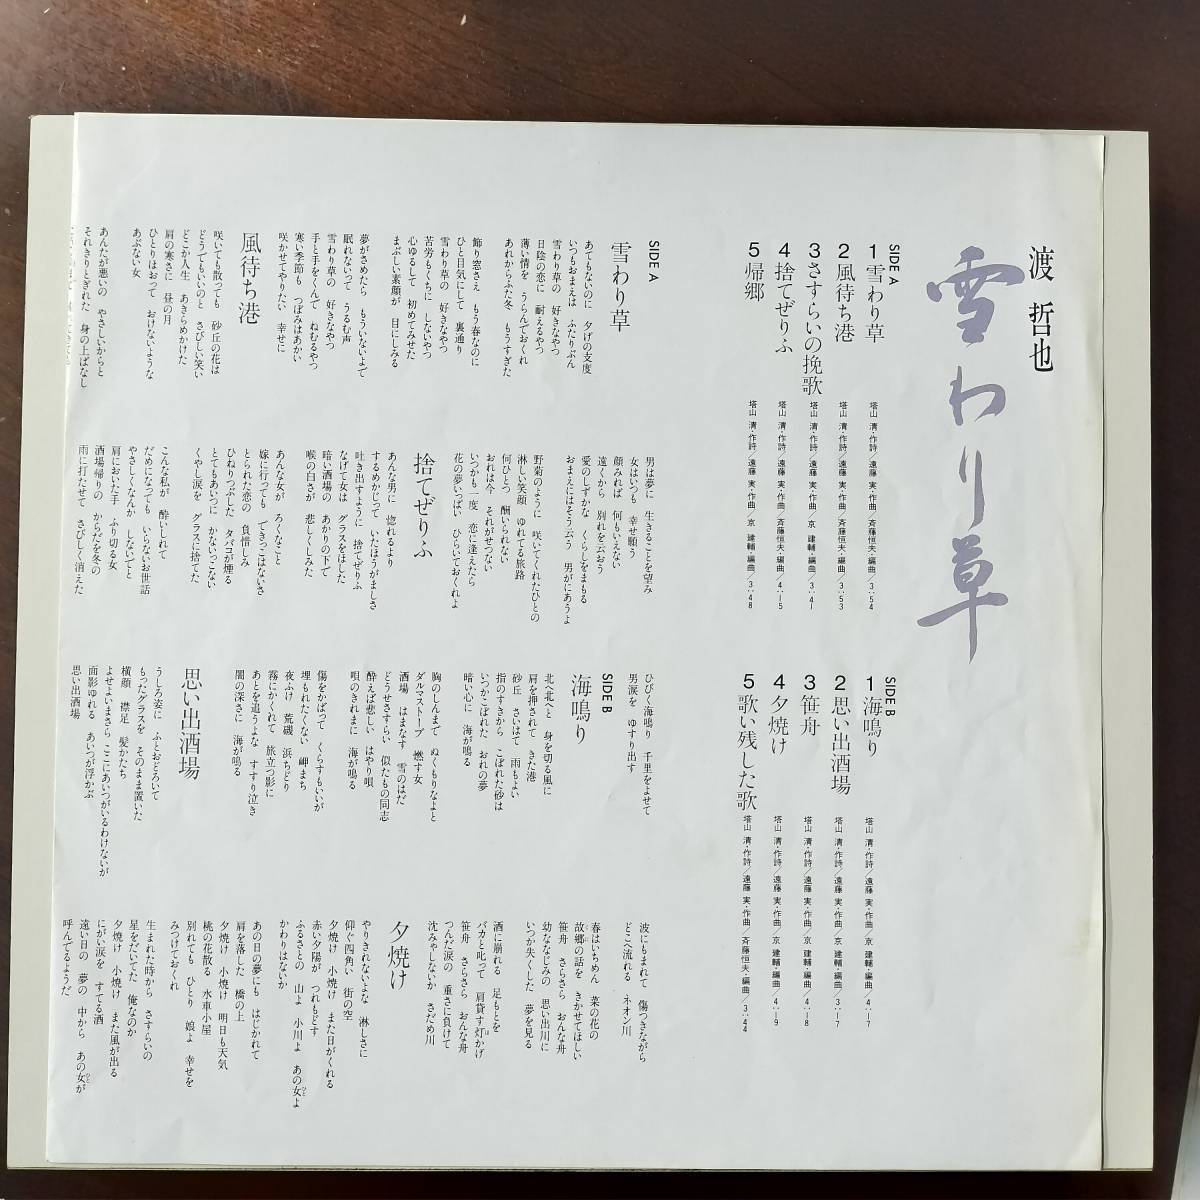 渡 哲也
雪わり草
SIDE A
1 雪わり草
塔山 清・作詩／遠藤 実・作曲／斉藤恒夫・編曲／3:54
2 風待ち港
塔山 清・作詩／遠藤 実・作曲／斉藤恒夫・編曲／3:53
3 さすらいの挽歌
塔山 清・作詩／遠藤 実・作曲／京 建輔・編曲／3:41
4 捨てぜりふ
塔山 清・作詩／遠藤 実・作曲／京 建輔・編曲／4:15
5 帰郷
塔山 清・作詩／遠藤 実・作曲／京 建輔・編曲／3:48
SIDE B
1 海鳴り
塔山 清・作詩／遠藤 実・作曲／京 建輔・編曲／4:17
2 思い出酒場
塔山 清・作詩／遠藤 実・作曲／京 建輔・編曲／3:17
3 笹舟
塔山 清・作詩／遠藤 実・作曲／京 建輔・編曲／4:18
4 夕焼け
塔山 清・作詩／遠藤 実・作曲／京 建輔・編曲／4:19
5 歌い残した歌
塔山 清・作詩／遠藤 実・作曲／斉藤恒夫・編曲／3:44
SIDE A
雪わり草
あてもないのに 夕げの支度
いつもおまえは ふたりぶん
雪わり草の 好きなやつ
日陰の恋に 耐えるやつ
薄い情を うらんでおくれ
あれからふた冬 もうすぎた
飾り窓さえ もう春なのに
ひと目気にして 裏通り
雪わり草の 好きなやつ
苦労もくちに しないやつ
心ゆるして 初めてみせた
まぶしい素顔が 目にしみる
夢がさめたら もういないよで
眠れないって うるむ声
雪わり草の 好きなやつ
手と手をくんで ねむるやつ
寒い季節も つぼみはあかい
咲かせてやりたい 幸せに
風待ち港
咲いても散っても 砂丘の花は
どうでもいいのと さびしい笑い
どこか人生 あきらめかけた
肩の寒さに 昼の月
ひとりはおって おけないような
あぶない女
あんたが悪いの やさしいからと
それきりとぎれた 身の上ばなし
男は夢に 生きることを望み
女はいつも 幸せ願う
顔みれば 何もいえない
遠くから 別れを云おう
愛のしずかな くらしをまもる
おまえにはそう云う 男がにあうよ
野菊のように 咲いてくれたひとの
淋しい笑顔 ゆれてる旅路
何ひとつ 酬いられない
おれは今 それがせつない
いつかも一度 恋に逢えたら
花の夢いっぱい ひらいておくれよ
捨てぜりふ
あんな男に 惚れるより
するめかじって いたほうがましさ
吐き出すように 捨てぜりふ
なげて女は グラスをほした
暗い酒場の あかりの下で
喉の白さが 悲しくしみた
あんな女が ろくなことと
嫁に行っても できっこはないさ
とられた恋の 負惜しみ
ひねりつぶした タバコが煙る
とてもあいつに かないっこない
くやし涙を グラスに捨てた
こんな私が 酔いしれて
だめになっても いらないお世話
やさしくなんか しないでと
肩においた手 ふり切る女
酒場帰りの からだを冬の
雨に打たせて さびしく消えた
ひびく海鳴り 千里をよせて
男涙を ゆすり出す
SIDE B
海鳴り
北へ北へと 身を切る風に
肩を押されて きた港
砂丘 さいはて 雨もよい
指のすきから こぼれた砂は
いつかこぼれた おれの夢
暗い心に 海が鳴る
胸のしんまで ぬくもりなよと
ダルマストーブ 燃す女
酒場 はまなす 雪のはだ
どうせさすらい 似たもの同志
酔えば悲しい はやり唄
唄のきれまに 海が鳴る
傷をかばって くらすもいいが
埋もれたくない 岬まち
夜ふけ 荒磯 浜ちどり
霧にかくれて 旅立つ影に
あとを追うよな すすり泣き
闇の深さに 海が鳴る
思い出酒場
うしろ姿に ふとおどろいて
もったグラスを そのまま置いた
横顔 襟足 髪かたち
よせよいまさら ここにあいつがいるわけないが
面影ゆれる あいつが浮かぶ
思い出酒場
波にもまれて 傷つきながら
どこへ流れる ネオン川
春はいちめん 菜の花の
故郷の話を きかせてほしい
笹舟 さらさら おんな舟
幼ななじみの 思い出川に
いつか失くした 夢を見る
酒に崩れる 足もとを
バカと叱って 肩貸す灯かげ
笹舟 さらさら おんな舟
つんだ涙の 重さに負けて
沈みゃしないか さだめ川
夕焼け
やりきれないよな 淋しさに
仰ぐ四角い 街の空
夕焼け 小焼け また日がくれる
赤い夕陽が つれもどす
ふるさとの 山よ 小川よ あの女よ
かわりはないか
あの日の夢にも はじかれて
肩を落した 橋の上
夕焼け 小焼け 明日も天気
桃の花散る 水車小屋
別れても ひとり 娘よ 幸せを
みつけておくれ
生まれた時から さすらいの
星をだいてた 俺なのか
夕焼け 小焼け また風が出る
にがい涙を すてる酒
遠い日の 夢の 中から あの女が
呼んでるようだ